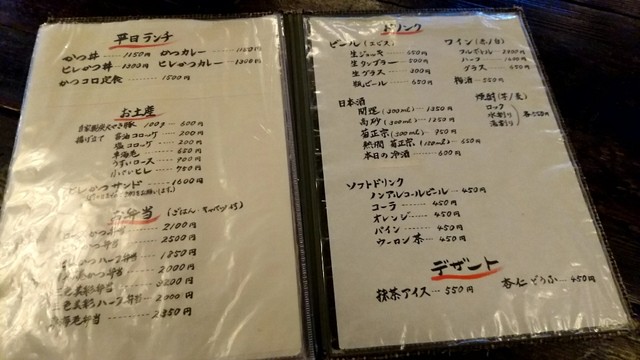 平日ランチ
かつ丼 ---- 1150円 かつカレー ---- 1150円
ヒレかつ丼 -- 1300円 ヒレかつカレー -- 1300円
かつコロ定食 ---- 1500円
お土産
100g -- 600円
揚げ立て 醤油コロッケ ---- 200円
塩コロッケ ---- 200円
車海老 ---- 650円
うすいロース ---- 900円
小さいヒレ ---- 750円
ヒレかつサンド ---- 1600円
お弁当 (ごはん・キャベツ付)
2100円
弁当 ---- 2500円
ハーフ弁当 ---- 1850円
かつ弁当 ---- 2000円
弁当 ---- 3200円
ハーフ弁当 ---- 2000円
海老弁当 ---- 2350円
ドリンク
ビール (エビス)
生ジョッキ ---- 650円
生タンブラー ---- 500円
生グラス ---- 300円
瓶ビール ---- 650円
ワイン (赤/白)
フルボトル
ハーフ
グラス ---- 650円
梅酒 ---- 550円
日本酒
開運 (300mℓ) ---- 1350円
高砂 (300mℓ) ---- 1250円
菊正宗 (300mℓ) 950円
熱燗 菊正宗 (180mℓ) -- 650円
本日の冷酒 ---- 600円
焼酎 (芋/麦)
ロック
水割り 各550円
湯割り
ソフトドリンク
ノンアルコールビール -- 450円
コーラ ---- 450円
オレンジ ---- 450円
パイン ---- 450円
ウーロン茶 -- 450円
デザート
抹茶アイス -- 550円 杏仁どうふ -- 450円